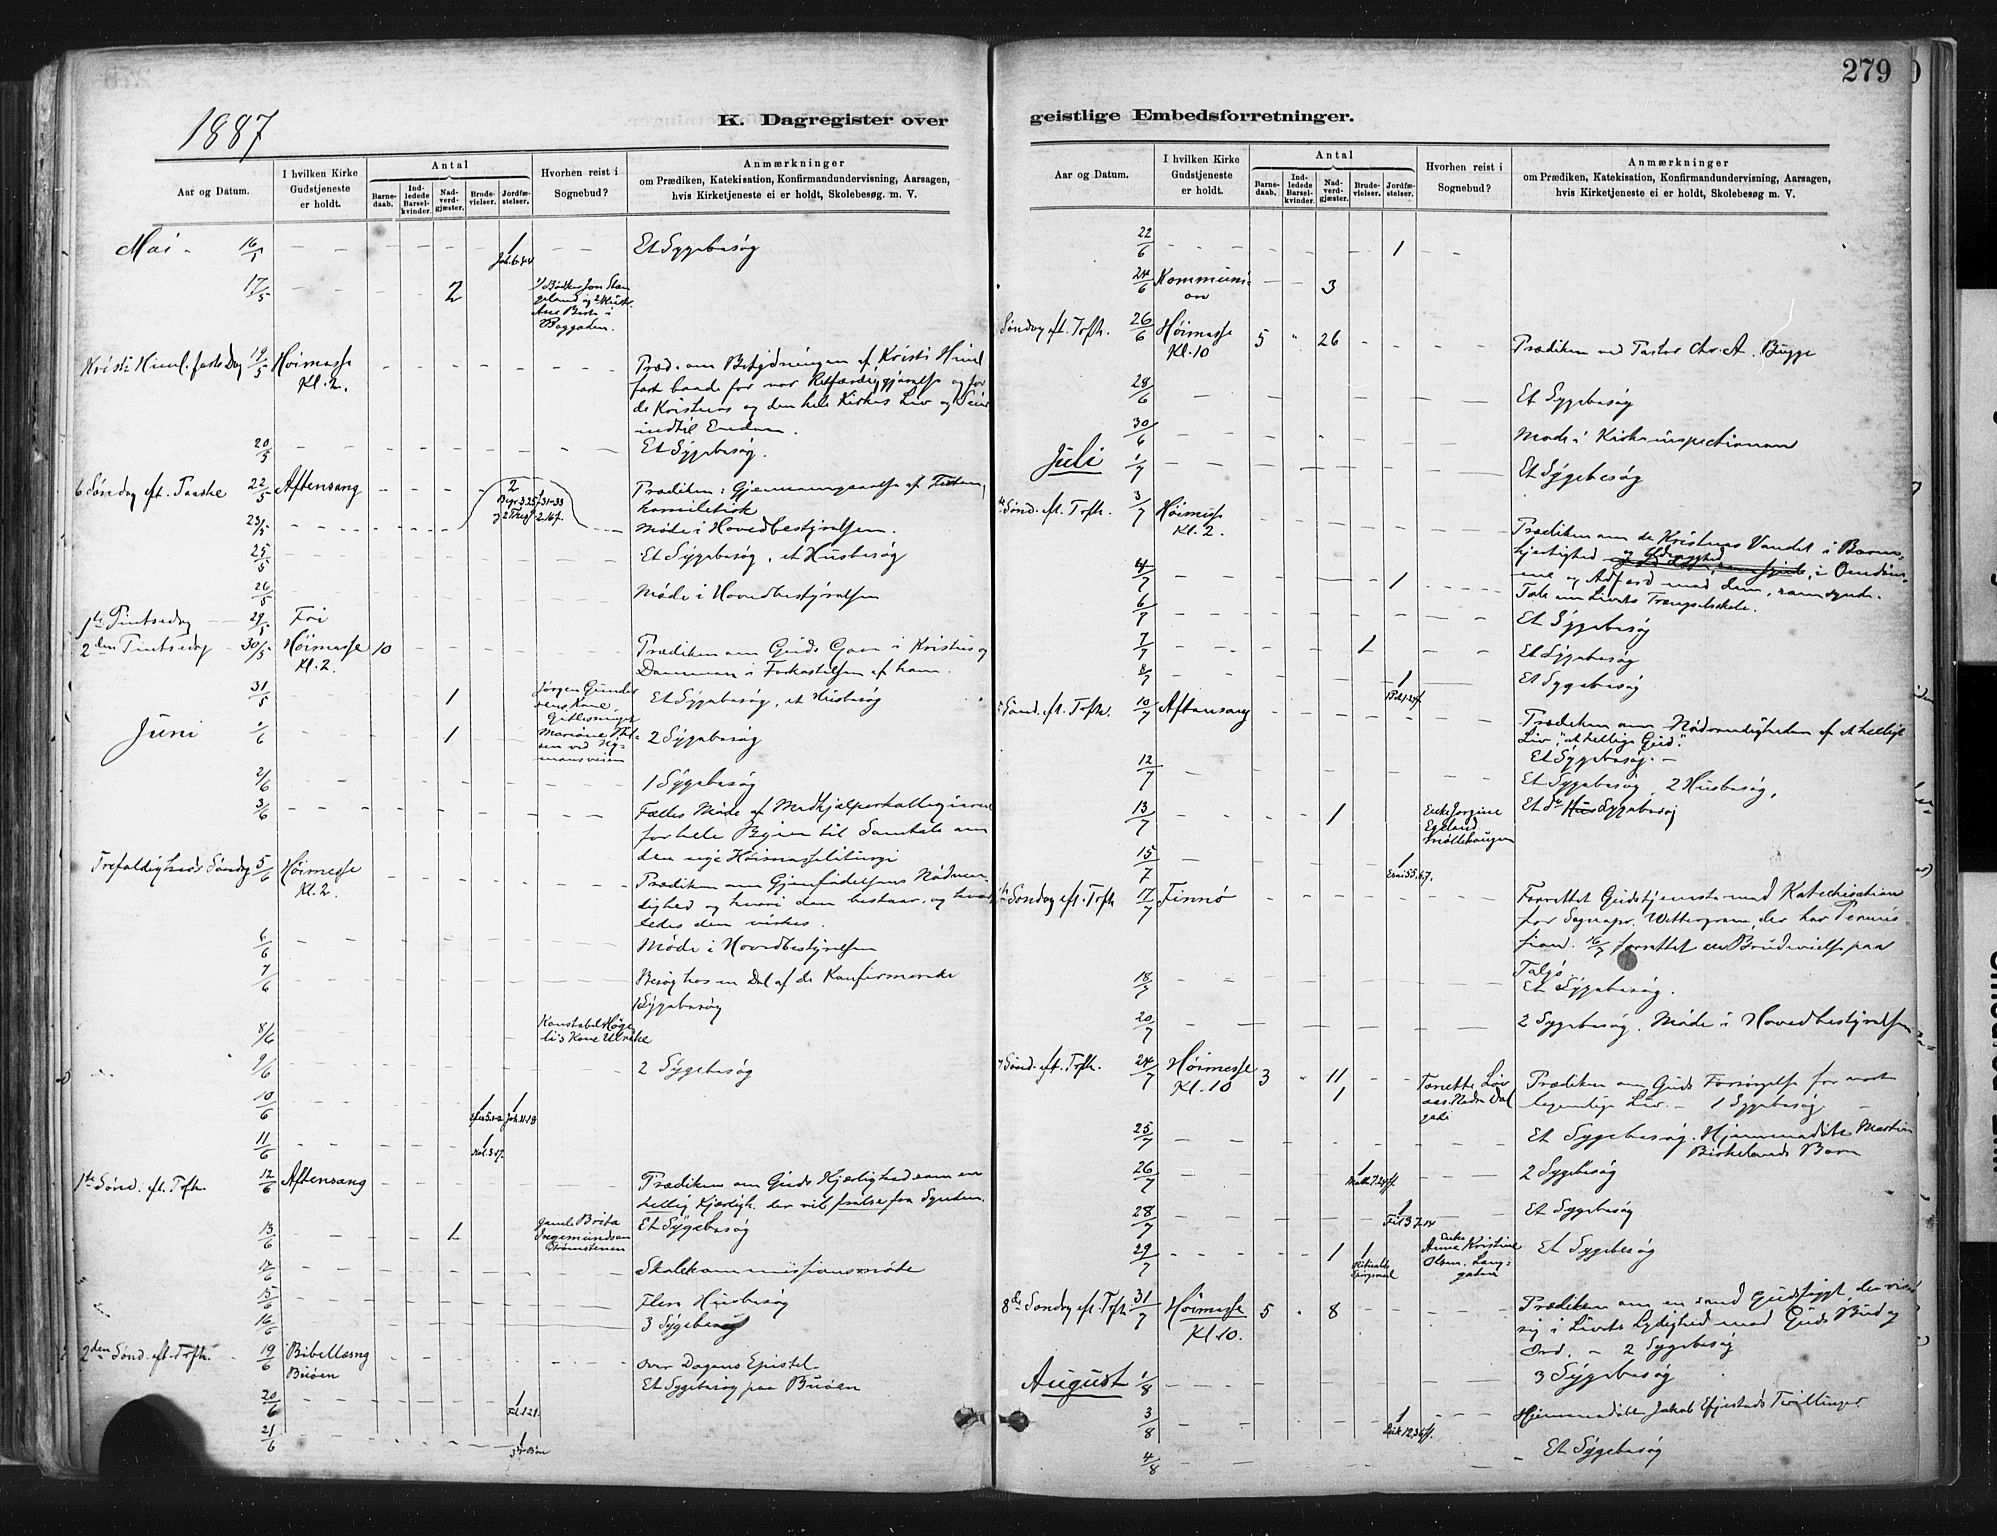 279
1887
K. Dagregister over
Aar og Datum.
I hvilken Kirke Gudstjeneste er holdt.
Antal
Barnedaab.
Indledede Barselkvinder.
Nadverdgjæster.
Brudevielser.
Jordfæstelser.
Hvorhen reist i Sognebud?
Anmærkninger
om Prædiken, Katekisation, Konfirmandundervisning, Aarsagen,
hvis Kirketjeneste ei er holdt, Skolebesøg m. V.
Mai - 16/5 1 Et Sygebesøg
17/5 2
Kristi Himl. farts Dag 19/5 Høimesse Præd. om Betydningen af Kristi Himl
Kl. 2. fart baade for vor Retfærdiggjørelse og for
de Kristnes og den hele Kirkes Liv og Seier
indtil Enden.
20/5 Et Sygebesøg.
6 Søndag eft. Paaske 22/5 Aftensang 2 Prædiken: Gjennemgaaelse af Texten,
homiletisk
23/5 Møde i Hovedbestyrelsen.
25/5 Et Sygebesøg, et Husbesøg
26/5 Møde i Hovedbestyrelsen
1ste Pintsedag 29/5 Fri
2den Pintsedag 30/5 Høimesse 10 Prædiken om Guds Gave i Kristus og
Kl. 2. Dommen i Forkastelsen af ham.
31/5 1 Jørgen Et Sygebesøg, et Husbesøg
Juni 1/6 1 2 Sygebesøg
2/6 1 Sygebesøg
3/6 Fælles Møde af Medhjælperkollegierne
for hele Byen til Samtale om
den nye Høimesseliturgi
Trefoldigheds Søndag 5/6 Høimesse Prædiken om Gjenfødelsens Nødven-
Kl. 2 dighed og hvori den bestaar, og hvor
ledes den virkes.
6/6 Møde i Hovedbestyrelsen
7/6 Besøg hos en Del af de Konfirmerede
1 Sygebesøg
8/6 Konstabel Høge-
li's Kone Ulrikke
9/6 2 Sygebesøg
10/6 1 1
11/6 1
1ste Sønd. eft. Trfh. 12/6 Aftensang Prædiken om Guds Kjærlighed som en
hellig Kjærligh. der vil frælse fra Synden.
13/6 1 gamle Brita Et Sygebesøg
Ingemundsen
Strømstenen
14/6 Skolekommissionsmøde
15/6 Flere Husbesøg
16/6 3 Sygebesøg
2den Sønd. eft. Trfh. 19/6 Bibellæsng over Dagens Epistel.
Buøen Et Sygebesøg paa Buøen
20/6 1
21/6 1
geistlige Embedsforretninger.
Aar og Datum.
I hvilken Kirke Gudstjeneste er holdt.
Antal
Barnedaab.
Indledede Barselkvinder.
Nadverdgjæster.
Brudevielser.
Jordfæstelser.
Hvorhen reist i Sognebud?
Anmærkninger
om Prædiken, Katekisation, Konfirmandundervisning, Aarsagen,
hvis Kirketjeneste ei er holdt, Skolebesøg m. V.
22/6 1
24/6 Kommuni- 3
on
Søndag eft. Trfh. 26/6 Høimesse 5 " 26 Prædiken ved Pastor Chr. A. Bugge
Kl. 10
28/6 Et Sygebesøg
30/6 Møde i Kirkeinspectionen
Juli 1/7 Et Sygebesøg
Sønd. eft. Trfh. 3/7 Høimesse Prædiken om de Kristnes Vandel i Barm-
Kl. 2. hjertighed
4/7 1 og Adfærd mod dem, som synde.
Tale om Livets Trængselskole.
6/7 Et Sygebesøg
7/7 1 Et Sygebesøg
8/7 1 Et Sygebesøg
Sønd. eft. Trfh. 10/7 Aftensang Prædiken om Nødvendigheden af et helligt
Liv, "et hellige Gud".
12/7 Et Sygebesøg. -
Et Sygebesøg, 2 Husbesøg,
13/7 1 Enke Jorgine Et Sygebesøg
Egeland
Møllehaugen
15/7 1
Søndag eft. Trfh 17/7 Finnø Forrettet Gudstjeneste med Katechisation
for Sognepr. Wettergreen, der har Permis-
sion. 16/7 forrettet en Brudevielse paa
Talgø
18/7 Et Sygebesøg.
20/7 2 Sygebesøg. Møde i Hovedbestyrelsen
7 Sønd. eft. Trfh. 24/7 Høimesse 3 " 11 Prædiken om Guds Forsørgelse for vort
Kl. 10 1 legemlige Liv. - 1 Sygebesøg
25/7 Et Sygebesøg. Hjemmedøbte Martin
Birkelands Barn
26/7 1 2 Sygebesøg
28/7 1 Et Sygebesøg
29/7 1 1 Enke Anne Kristine Et Sygebesøg
Olsen. Lang-
gaden
8de Søndag eft. Trfh 31/7 Høimesse 5 " 8 Prædiken om en sand Gudsfrygt, der viser
Kl 10. sig i Livets Lydighed mod Guds Bud og
Ord. - 2 Sygebesøg
August 1/8 3 Sygebesøg
3/8 1 Hjemmedøbt Jakob Tvillinger
4/8 Et Sygebesøg